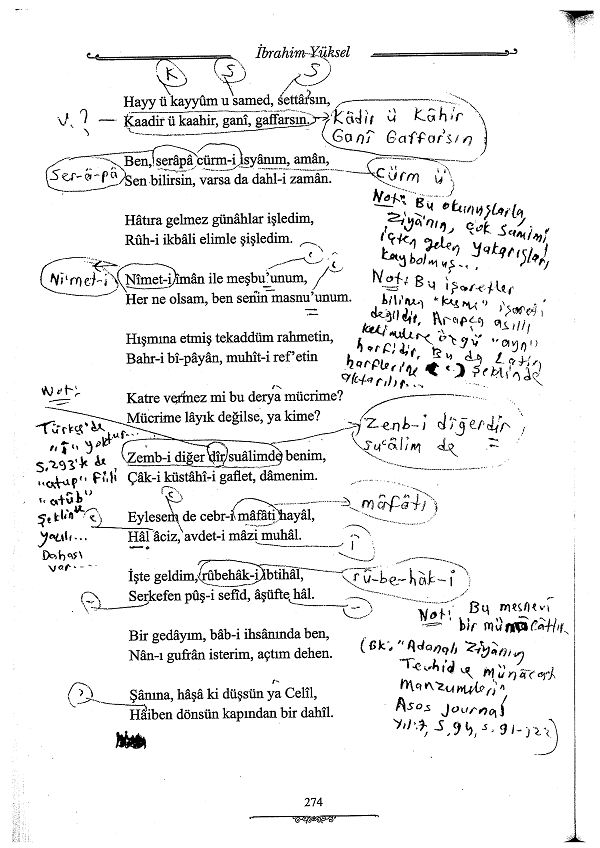 İbrahim Yüksel
K Ş S
Hayy ü kayyûm u samed, settârsın,
V.? Kaadir ü kaahir, ganî, gaffarsın.
Kâdir ü Kâhir
Ganî Gaffarsın
Ben, serâpâ cürm-i isyânım, amân,
Ser-â-pâ
Sen bilirsin, varsa da dahl-i zamân.
cürm ü
Not: Bu okunuşlarla,
Ziyâ'nın, çok samimi
içten gelen yakarışları
kaybolmuş...
Hâtıra gelmez günâhlar işledim,
Rûh-i ikbâli elimle şişledim.
Ni'met-i
Nîmet-i îmân ile meşbu'unum,
Her ne olsam, ben senin masnu'unum.
Not: Bu işaretler
bilinen "kesme" işareti
değildir, Arapça asıllı
kelimelere özgü "ayn"
harfidir, Bu da Latin
harflerine (‘) şeklinde
aktarılır...
Hışmına etmiş tekaddüm rahmetin,
Bahr-i bî-pâyân, muhît-i ref'etin
Katre vermez mi bu derya mücrime?
Mücrime lâyık değilse, ya kime?
Not:
Türkçe'de
"î" yoktur...
S.293'te de
"atup" fiili
"atûb"
şeklinde
yazılı...
Dahası
var...
Zemb-i diğer dîr suâlimde benim,
Çâk-i küstâhî-i gaflet, dâmenim.
Zenb-i dîğerdir
su'âlim de
Eylesem de cebr-i mâfâti hayâl,
Hâl âciz, avdet-i mâzi muhâl.
mâfâtı
î
İşte geldim, rûbehâk-i ibtihâl,
Serkefen pûş-i sefîd, âşüfte hâl.
rû-be-hâk-i
Bir gedâyım, bâb-i ihsânında ben,
Nân-ı gufrân isterim, açtım dehen.
Şânına, hâşa ki düşsün ya Celîl,
Hâiben dönsün kapından bir dahîl.
Not: Bu mesnevi
bir münâcâttır.
(Bk. "Adanalı Ziyânın
Tevhid ve Münâcat
Manzumeleri",
Asos Journal
Yıl:7, S.94, s.91-122)
274